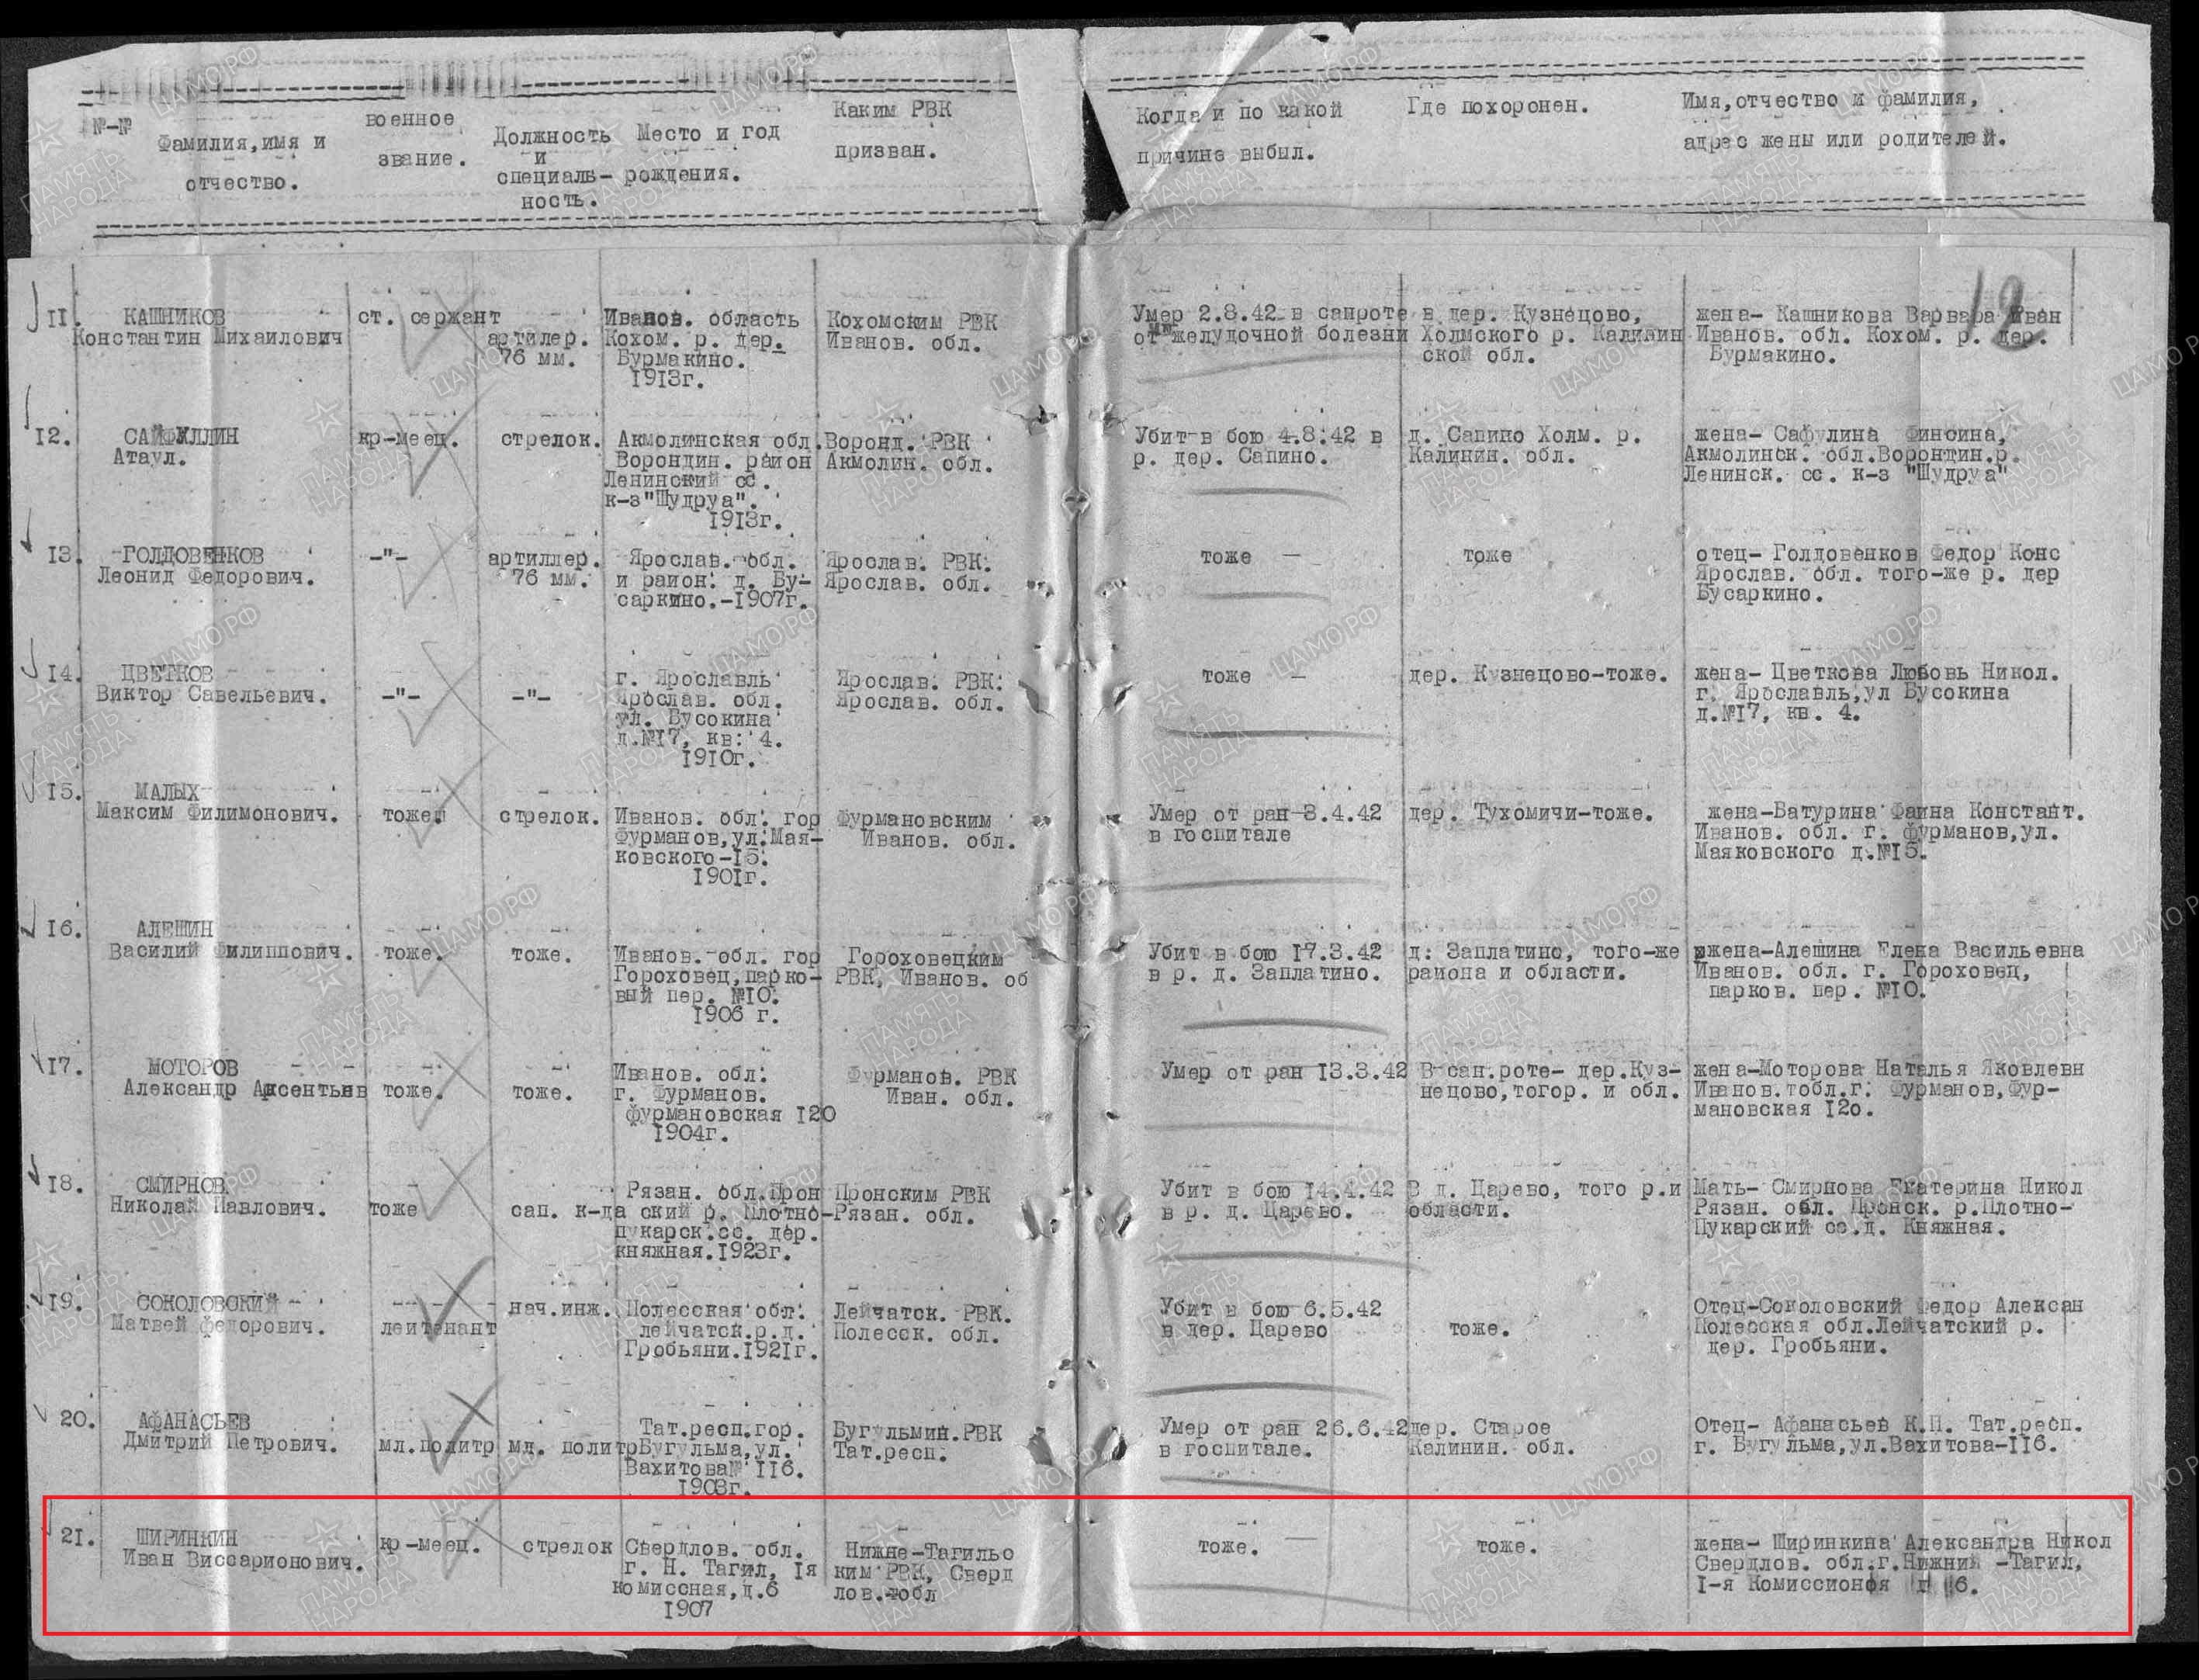 №-№
Фамилия,имя и
отчество.
военное
звание.
Должность
и
специаль-
ность.
Место и год
рождения.
Каким РВК
призван.
Когда и по какой
причине выбыл.
Где похоронен.
Имя,отчество и фамилия,
адрес жены или родителей.
12
11.
КАШНИКОВ
Константин Михаилович
ст. сержант
артилер.
76 мм.
Иванов. область
Кохом. р. дер.
Бурмакино.
1913г.
Кохомским РВК
Иванов. обл.
Умер 2.8.42 в санроте
от желудочной болезни
в дер. Кузнецово,
Холмского р. Калинин
ской обл.
жена- Кашникова Варвара Иван
Иванов. обл. Кохом. р. дер.
Бурмакино.
12.
САЙФУЛЛИН
Атаул.
кр-меец.
стрелок.
Акмолинская обл.
Ворондин. район
Ленинский сс.
к-з"Шудруа".
1913г.
Воронд. РВК
Акмолин. обл.
Убит в бою 4.8.42 в
р. дер. Сапино.
д. Сапино Холм. р.
Калинин. обл.
жена- Сафулина Финсина,
Акмолинск. обл.Ворондин.р.
Ленинск. сс. к-з "Шудруа"
13.
ГОЛДОВЕНКОВ
Леонид Федорович.
-"-
артиллер.
76 мм.
Ярослав. обл.
и район. д. Бу-
саркино.-1907г.
Ярослав. РВК.
Ярослав. обл.
тоже -
тоже
отец- Голдовенков Федор Конс
Ярослав. обл. того-же р. дер
Бусаркино.
14.
ЦВЕТКОВ
Виктор Савельевич.
-"-
-"-
г. Ярославль
Ярослав. обл.
ул. Бусокина
д.№17, кв. 4.
1910г.
Ярослав. РВК.
Ярослав. обл.
тоже -
дер. Кузнецово-тоже.
жена- Цветкова Любовь Никол.
г. Ярославль,ул Бусокина
д.№17, кв. 4.
15.
МАЛЫХ
Максим Филимонович.
тоже
стрелок.
Иванов. обл. гор
Фурманов,ул.Мая-
ковского-15.
1901г.
Фурмановским
Иванов. обл.
Умер от ран 3.4.42
в госпитале
дер. Тухомичи-тоже.
жена-Батурина Фаина Констант.
Иванов. обл. г. фурманов,ул.
Маяковского д.№15.
16.
АЛЕШИН
Василий Филиппович.
тоже.
тоже.
Иванов. обл. гор
Гороховец,парко-
вый пер. №10.
1906 г.
Гороховецким
РВК, Иванов. об
Убит в бою 17.3.42
в р. д. Заплатино.
д. Заплатино, того-же р
района и области.
жена-Алешина Елена Васильевна
Иванов. обл. г. Гороховец,
парков. пер. №10.
17.
МОТОРОВ
Александр Аксентьев
тоже.
тоже.
Иванов. обл.
г. Фурманов.
фурмановская 120
1904г.
Фурманов. РВК
Иван. обл.
Умер от ран 13.3.42
В сан.роте- дер.Куз-
нецово,тогор. и обл.
жена-Моторова Наталья Яковлевн
Иванов.тобл.г. Фурманов,Фур-
мановская 12о.
18.
СМИРНОВ
Николай Павлович.
тоже
сап. к-да
Рязан. обл.Прон
ский р. Плотно-
пукарск.сс. дер.
княжная.1923г.
Пронским РВК
Рязан. обл.
Убит в бою 14.4.42
в р. д. Царево.
В д. Царево, того р.и
области.
Мать- Смирнова Екатерина Никол
Рязан. обл. Пронск. р.Плотно-
Пукарский сс.д. Княжная.
19.
СОКОЛОВСКИЙ
Матвей федорович.
лейтенант
нач.инж.
Полесская обл.
лейчатск.р.д.
Гробьяни.1921г.
Лейчатск. РВК.
Полесск. обл.
Убит в бою 6.5.42
в дер. Царево
тоже.
Отец-Соколовский Федор Алексан
Полесская обл.Лейчатский р.
дер. Гробьяни.
20.
АФАНАСЬЕВ
Дмитрий Петрович.
мл.политр
мл. политр
Тат.респ.гор.
Бугульма,ул.
Вахитова№ 116.
1903г.
Бугульмин.РВК
Тат.респ.
Умер от ран 26.6.42
в госпитале.
дер. Старое
Калинин. обл.
Отец- Афанасьев К.П. Тат.респ.
г. Бугульма,ул.Вахитова-116.
21.
ШИРИНКИН
Иван Виссарионович.
кр-меец.
стрелок
Свердлов. обл.
г. Н. Тагил, 1я
комиссная,д.6
1907
Нижне-Тагильс
ким РВК, Сверд
лов.обл
тоже. -
тоже.
жена- Ширинкина Александра Никол
Свердлов. обл.г.Нижний -Тагил,
1-я Комиссионя д 6.
ПАМЯТЬ НАРОДА
ЦАМО.РФ